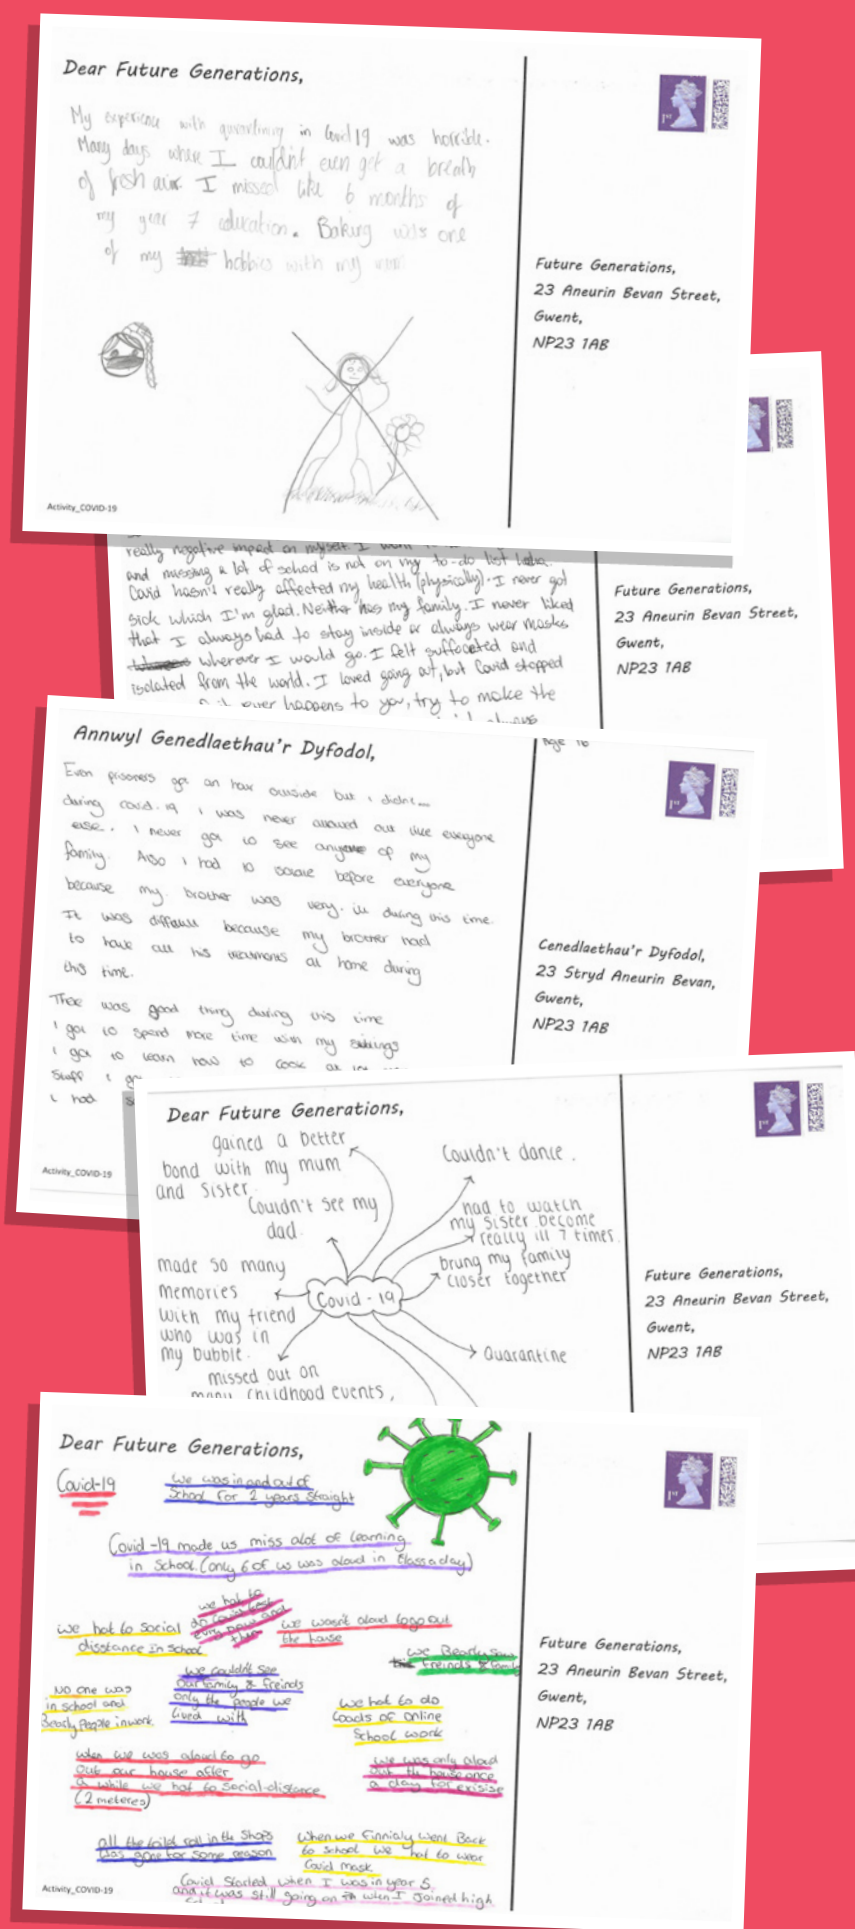 Dear Future Generations,
My experience with quarantining in Covid 19 was horrible.
Many days where I couldn't even get a breath
of fresh air. I missed like 6 months of
my year 7 education. Baking was one
of my hobbies with my
1st
Future Generations,
23 Aneurin Bevan Street,
Gwent,
NP23 1AB
Activity_COVID-19
really negative impact on myself. I want
and missing a lot of school is not on my to-do list
Covid hasn't really affected my health (physically). I never got
sick which I'm glad. Neither has my family. I never liked
that I always had to stay inside or always wear masks
wherever I would go. I felt suffocated and
isolated from the world. I loved going out, but Covid stopped
ever happens to you, try to make the
always
Future Generations,
23 Aneurin Bevan Street,
Gwent,
NP23 1AB
Annwyl Genedlaethau'r Dyfodol,
Even prisoners got an hour outside but i didnt...
during covid-19 i was never allowed out like everyone
else. I never got to see anyone of my
family. Also i had to isolate before everyone
because my brother was very ill during this time.
It was difficult because my brother had
to have all his treatments at home during
this time.
There was good thing during this time
I got to spend more time with my siblings
I got to learn how to cook
stuff I
i had
Age 16
1st
Cenedlaethau'r Dyfodol,
23 Stryd Aneurin Bevan,
Gwent,
NP23 1AB
Activity_COVID-19
Dear Future Generations,
gained a better
bond with my mum
and sister.
Couldn't see my
dad.
made so many
memories
with my friend
who was in
my bubble.
missed out on
many childhood events,
Covid-19
Couldn't dance.
had to watch
my sister become
really ill 7 times.
brung my family
closer together
Quarantine
1st
Future Generations,
23 Aneurin Bevan Street,
Gwent,
NP23 1AB
Dear Future Generations,
Covid-19
We was in and out of
School for 2 years straight
Covid-19 made us miss alot of learning
in School. (only 6 of us was aloud in class a day)
we hat to social
disstance in School
we hat to
do covid test
every now and
then
we wasn't aloud to go out
the house
we Bearly saw
freinds & family
No one was
in school and
Bearly People in work
we couldn't see
our family & freinds
only the people we
lived with
we hat to do
loads of online
School work
when we was aloud to go
out our house after
a while we hat to social-distance
(2 meteres)
we was only aloud
out the house once
a day for exisise
all the toilet roll in the shops
was gone for some reason
when we finnialy went Back
to school we hat to wear
Covid mask
Covid Started when I was in year 5
and it was still going on when I Joined high
1st
Future Generations,
23 Aneurin Bevan Street,
Gwent,
NP23 1AB
Activity_COVID-19